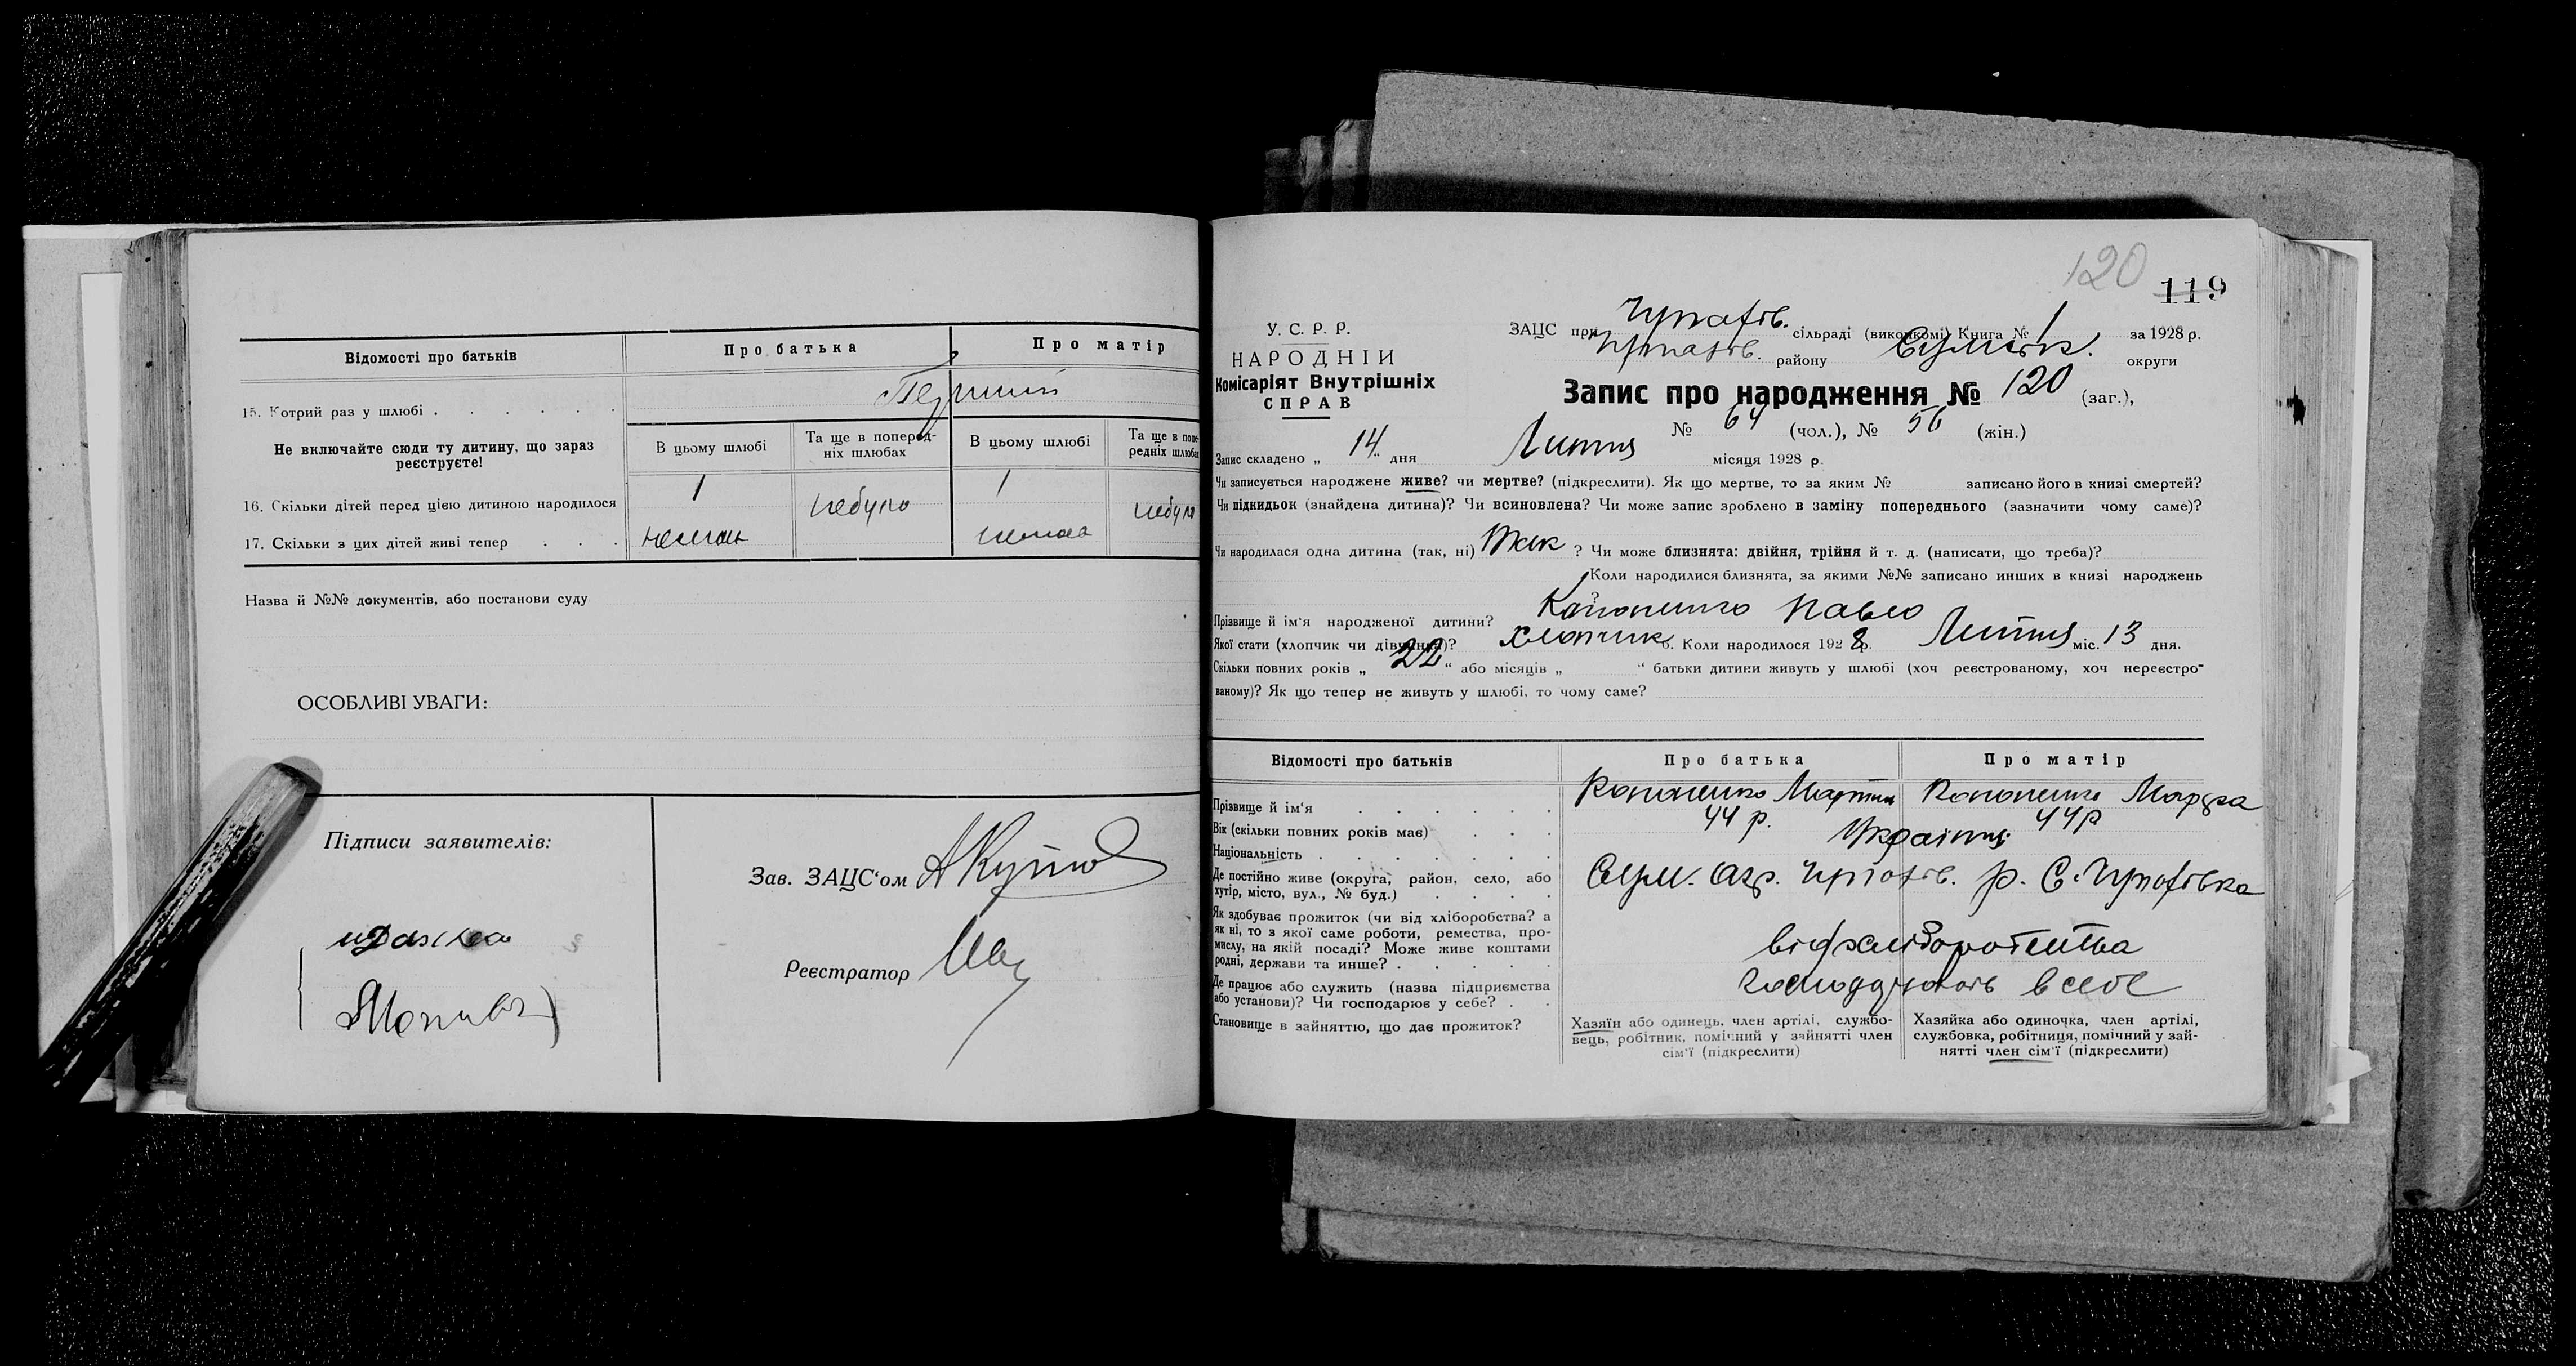 Відомості про батьків
Про батька
Про матір
15. Котрий раз у шлюбі . . . . . .
Перший
Не включайте сюди ту дитину, що зараз реєструєте!
В цьому шлюбі
Та ще в поперед-
ніх шлюбах
В цьому шлюбі
Та ще в попе-
редніх шлюбах
16. Скільки дітей перед цією дитиною народилося
1
небуло
1
небуло
17. Скільки з цих дітей живі тепер . . .
немає
немає
Назва й №№ документів, або постанови суду
ОСОБЛИВІ УВАГИ:
Підписи заявителів:
Зав. ЗАЦС'ом
Реєстратор
120
119
У. С. Р. Р.
НАРОДНІЙ
Комісаріят Внутрішніх
СПРАВ
ЗАЦС при Чупахів. сільраді (виконкомі) Книга № 1 за 1928 р.
Чупахів. району Сумськ. округи
Запис про народження № 120 (заг.),
№ 64 (чол.), № 56 (жін.)
Запис складено „ 14 “ дня Липня місяця 1928 р.
Чи записується народжене живе? чи мертве? (підкреслити). Як що мертве, то за яким № записано його в книзі смертей?
Чи підкидьок (знайдена дитина)? Чи всиновлена? Чи може запис зроблено в заміну попереднього (зазначити чому саме)?
Чи народилася одна дитина (так, ні) Так ? Чи може близнята: двійня, трійня й т. д. (написати, що треба)?
Коли народилися близнята, за якими №№ записано инших в книзі народжень
?
Прізвище й ім'я народженої дитини? Кононенко Павло
Якої стати (хлопчик чи дівчинка)? хлопчик б. Коли народилося 1928 р. Липня міс. 13 дня.
Скільки повних років „ 22 “ або місяців „ “ батьки дитини живуть у шлюбі (хоч реєстрованому, хоч нереєстро-
ваному)? Як що тепер не живуть у шлюбі, то чому саме?
Відомості про батьків
Про батька
Про матір
Прізвище й ім'я . . . . . .
Кононенко Мартин
Кононенко
Вік (скільки повних років має) . . .
44 р.
44 р
Національність . . . . . . .
Україн
Де постійно живе (округа, район, село, або
хутір, місто, вул., № буд.) . . . .
Сум. окр. Чупахів. р. С. Чупахівка
Як здобуває прожиток (чи від хліборобства? а
як ні, то з якої саме роботи, ремества, про-
мислу, на якій посаді? Може живе коштами
родні, держави та инше? . . . . .
від хліборобства
Де працює або служить (назва підприємства
або установи)? Чи господарює у себе? . .
господарюють в себе
Становище в зайняттю, що дає прожиток?
Хазяїн або одинець, член артілі, службо-
вець, робітник, помічний у зайнятті член
сім'ї (підкреслити)
Хазяйка або одиночка, член артілі,
службовка, робітниця, помічний у зай-
нятті член сім'ї (підкреслити)